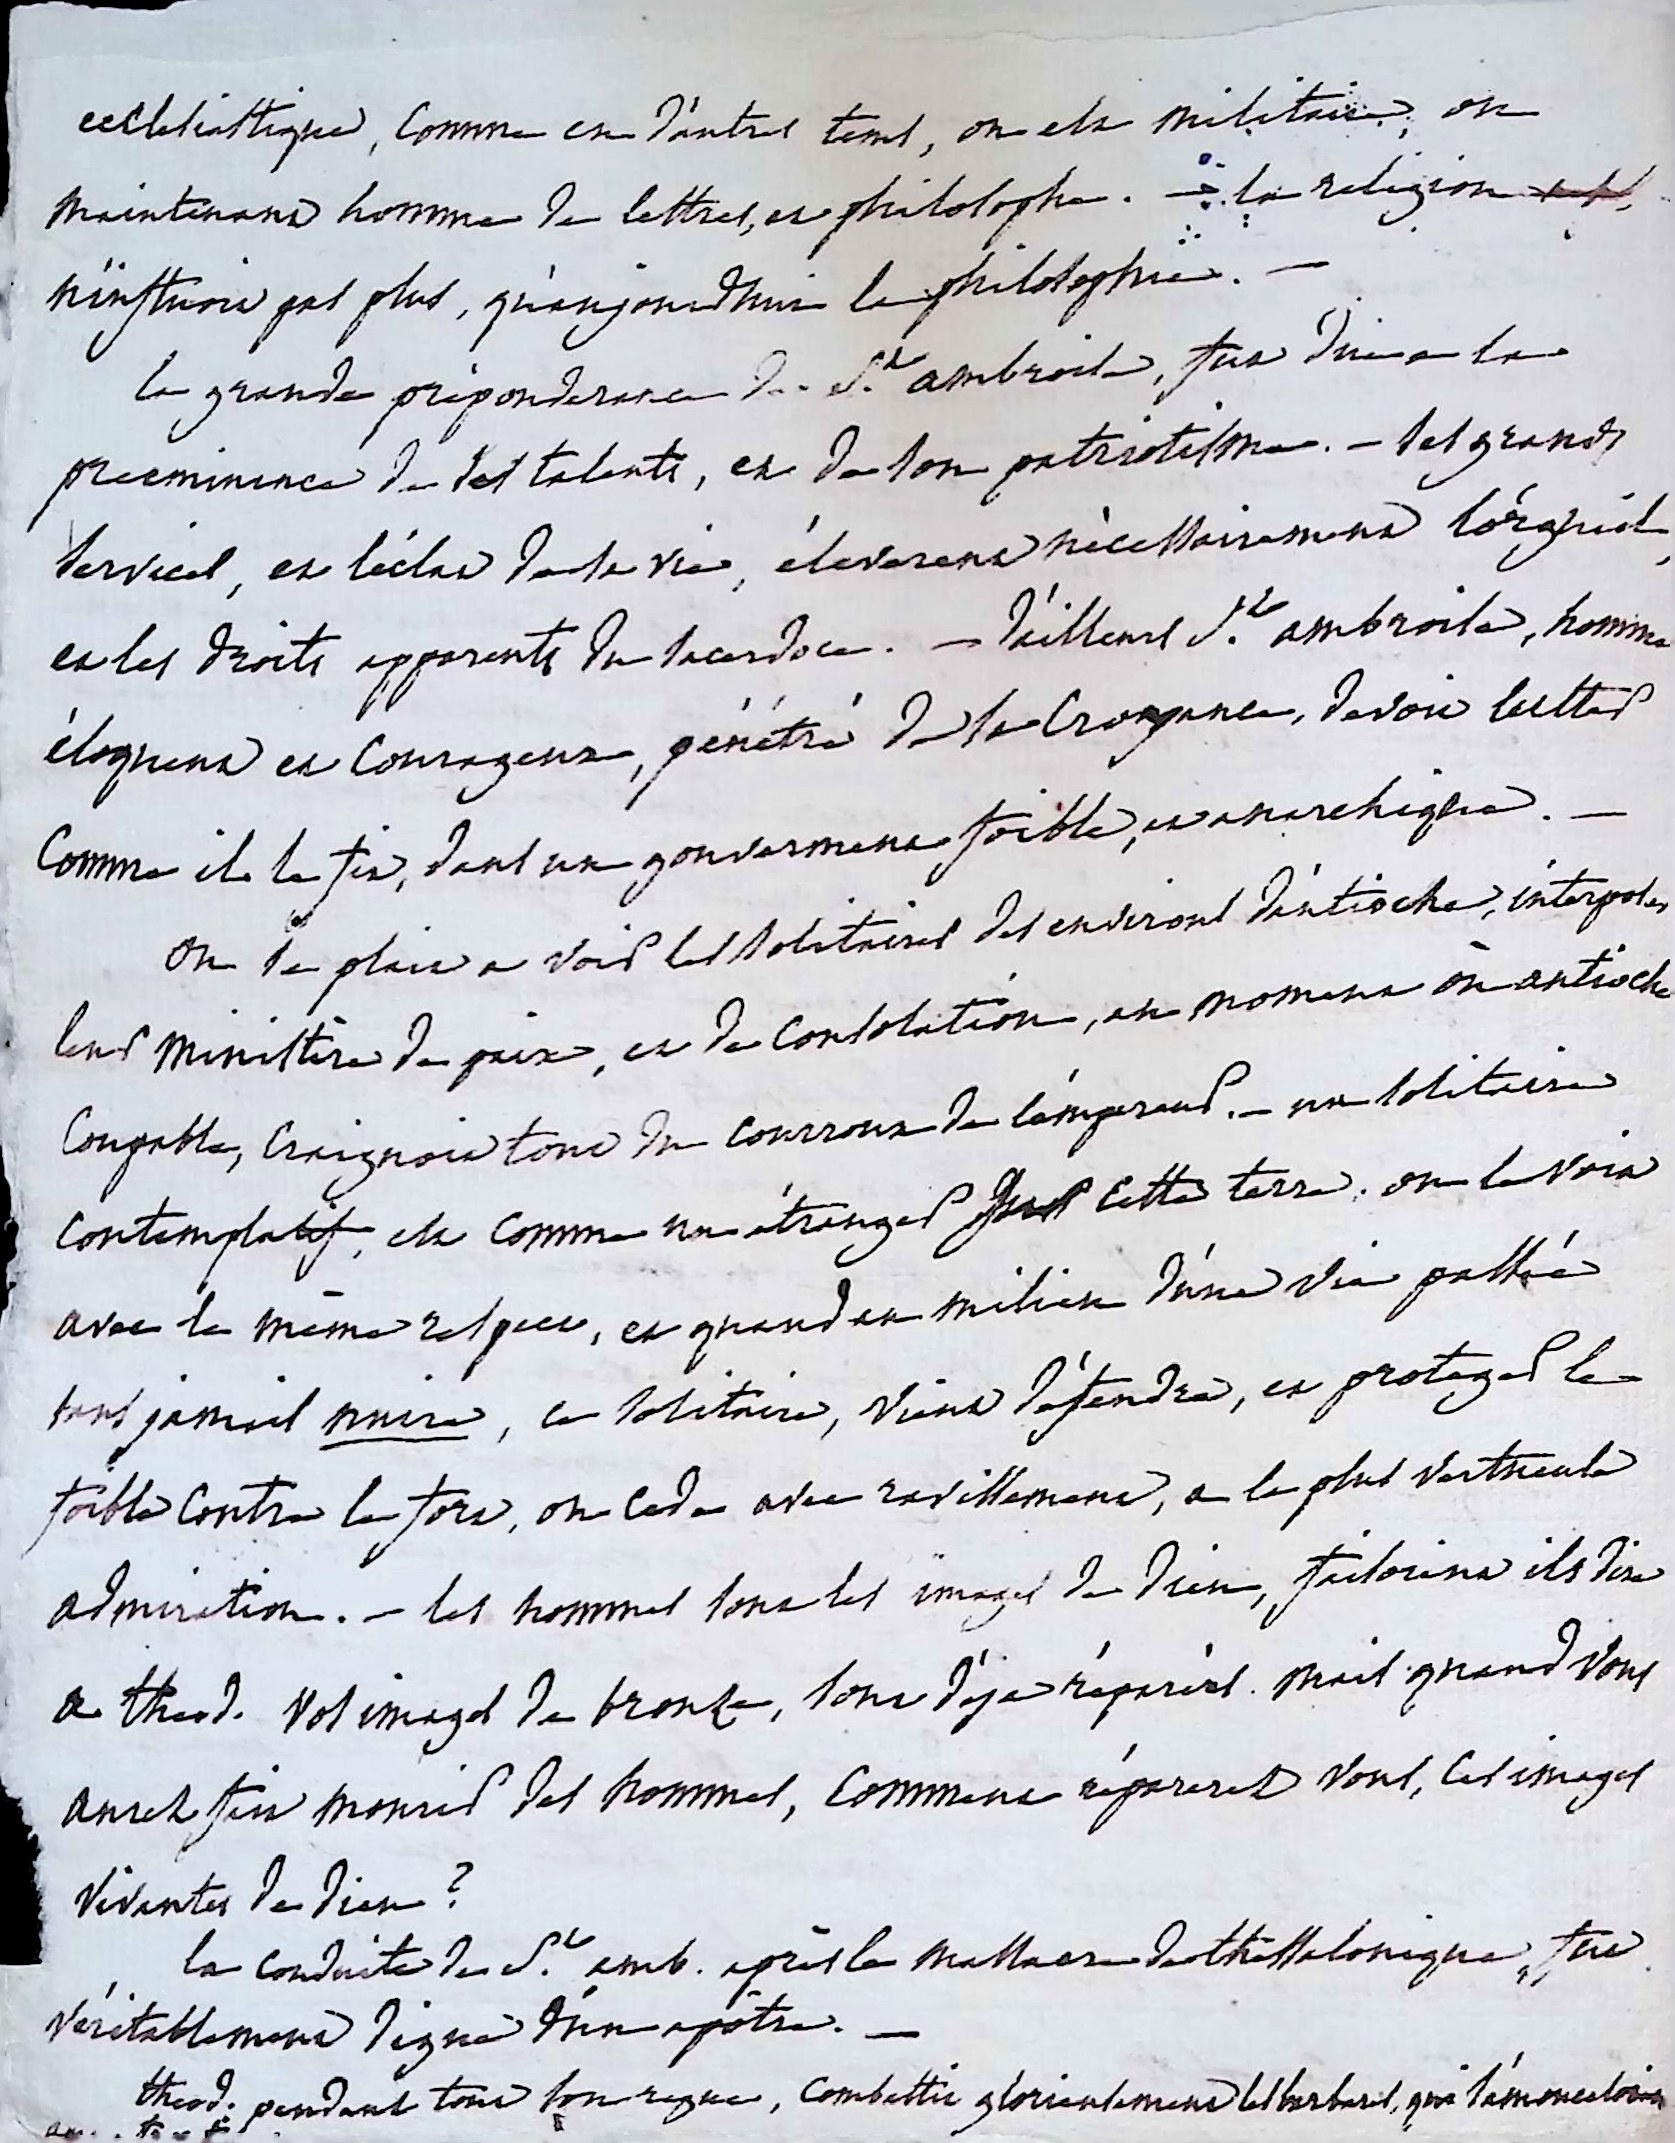 ecclesiastique, comme en d'autres tems, on est militaire, ou
maintenant homme de lettres, et philosophe. — la religion
n'influoit pas plus, qu'aujourdhui la philosophie. —
la grande préponderance de St ambroise, fut due a la
preeminence de ses talents, et de son patriotisme. — ses grands
services, et l'éclat de sa vie, éleverent nécessairement l'orgueil,
et les droits apparents du sacerdoce. — d'ailleurs St ambroise, homme
éloquent et courageux, pénétré de sa croyance, devoit lutter
comme il le fit, dans un gouvernement foible, et anarchique. —
on se plait a voir les solitaires des environs d'antioche, interposer
leur ministère de paix, et de consolation, au moment où antioche
coupable, craignoit tout du courroux de l'empereur. — un solitaire
contemplatif, est comme un étranger sur cette terre. on le voit
avec le même respect, et quand au milieu d'une vie passée
sans jamais nuire, ce solitaire, vient défendre, et proteger le
foible contre le fort, on cede avec ravissement, a la plus vertueuse
admiration. — les hommes sont les images de dieu, faisoient ils dire
a theod. vos images de bronze, sont déja réparées. mais quand vous
aurez fait mourir des hommes, comment réparerez vous, ces images
vivantes de dieu ?
la conduite de St amb. après le massacre de thessalonique, fut
véritablement digne d'un apôtre. —
theod. pendant tout son regne, combattit glorieusement les barbares, qui s'amonceloient